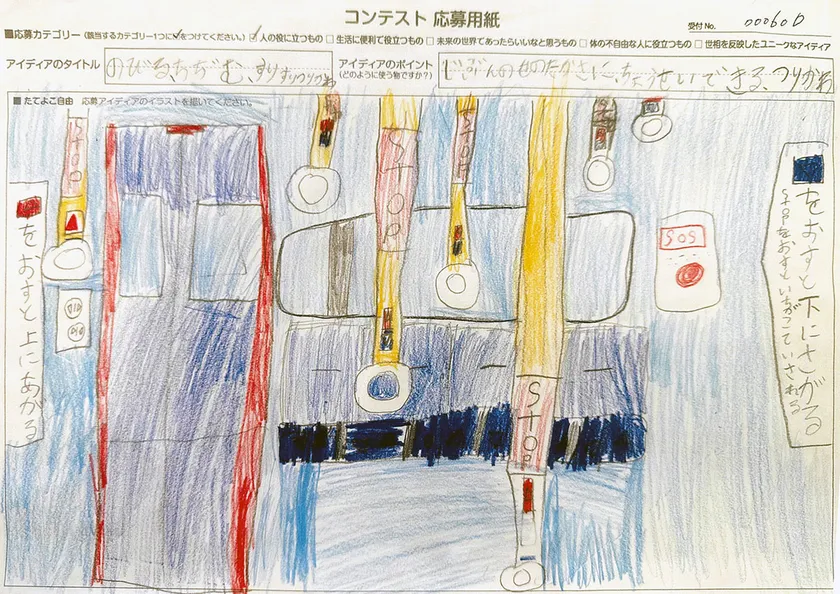 コンテスト 応募用紙
受付No. 000600
■応募カテゴリー (該当するカテゴリー1つに✓をつけてください。) ☑人の役に立つもの □生活に便利で役立つもの □未来の世界であったらいいなと思うもの □体の不自由な人に役立つもの □世相を反映したユニークなアイディア
アイディアのタイトル のびるちぢむ、すりすりつりかわ
アイディアのポイント (どのように使う物ですか?) じぶんのせのたかさに、ちょうせいできる、つりかわ
■たてよこ自由 応募アイディアのイラストを描いてください。
をおすと上にあがる
STOP
STOP
STOP
STOP
SOS
をおすと下にさがる
STOPをおすといちがこていされる